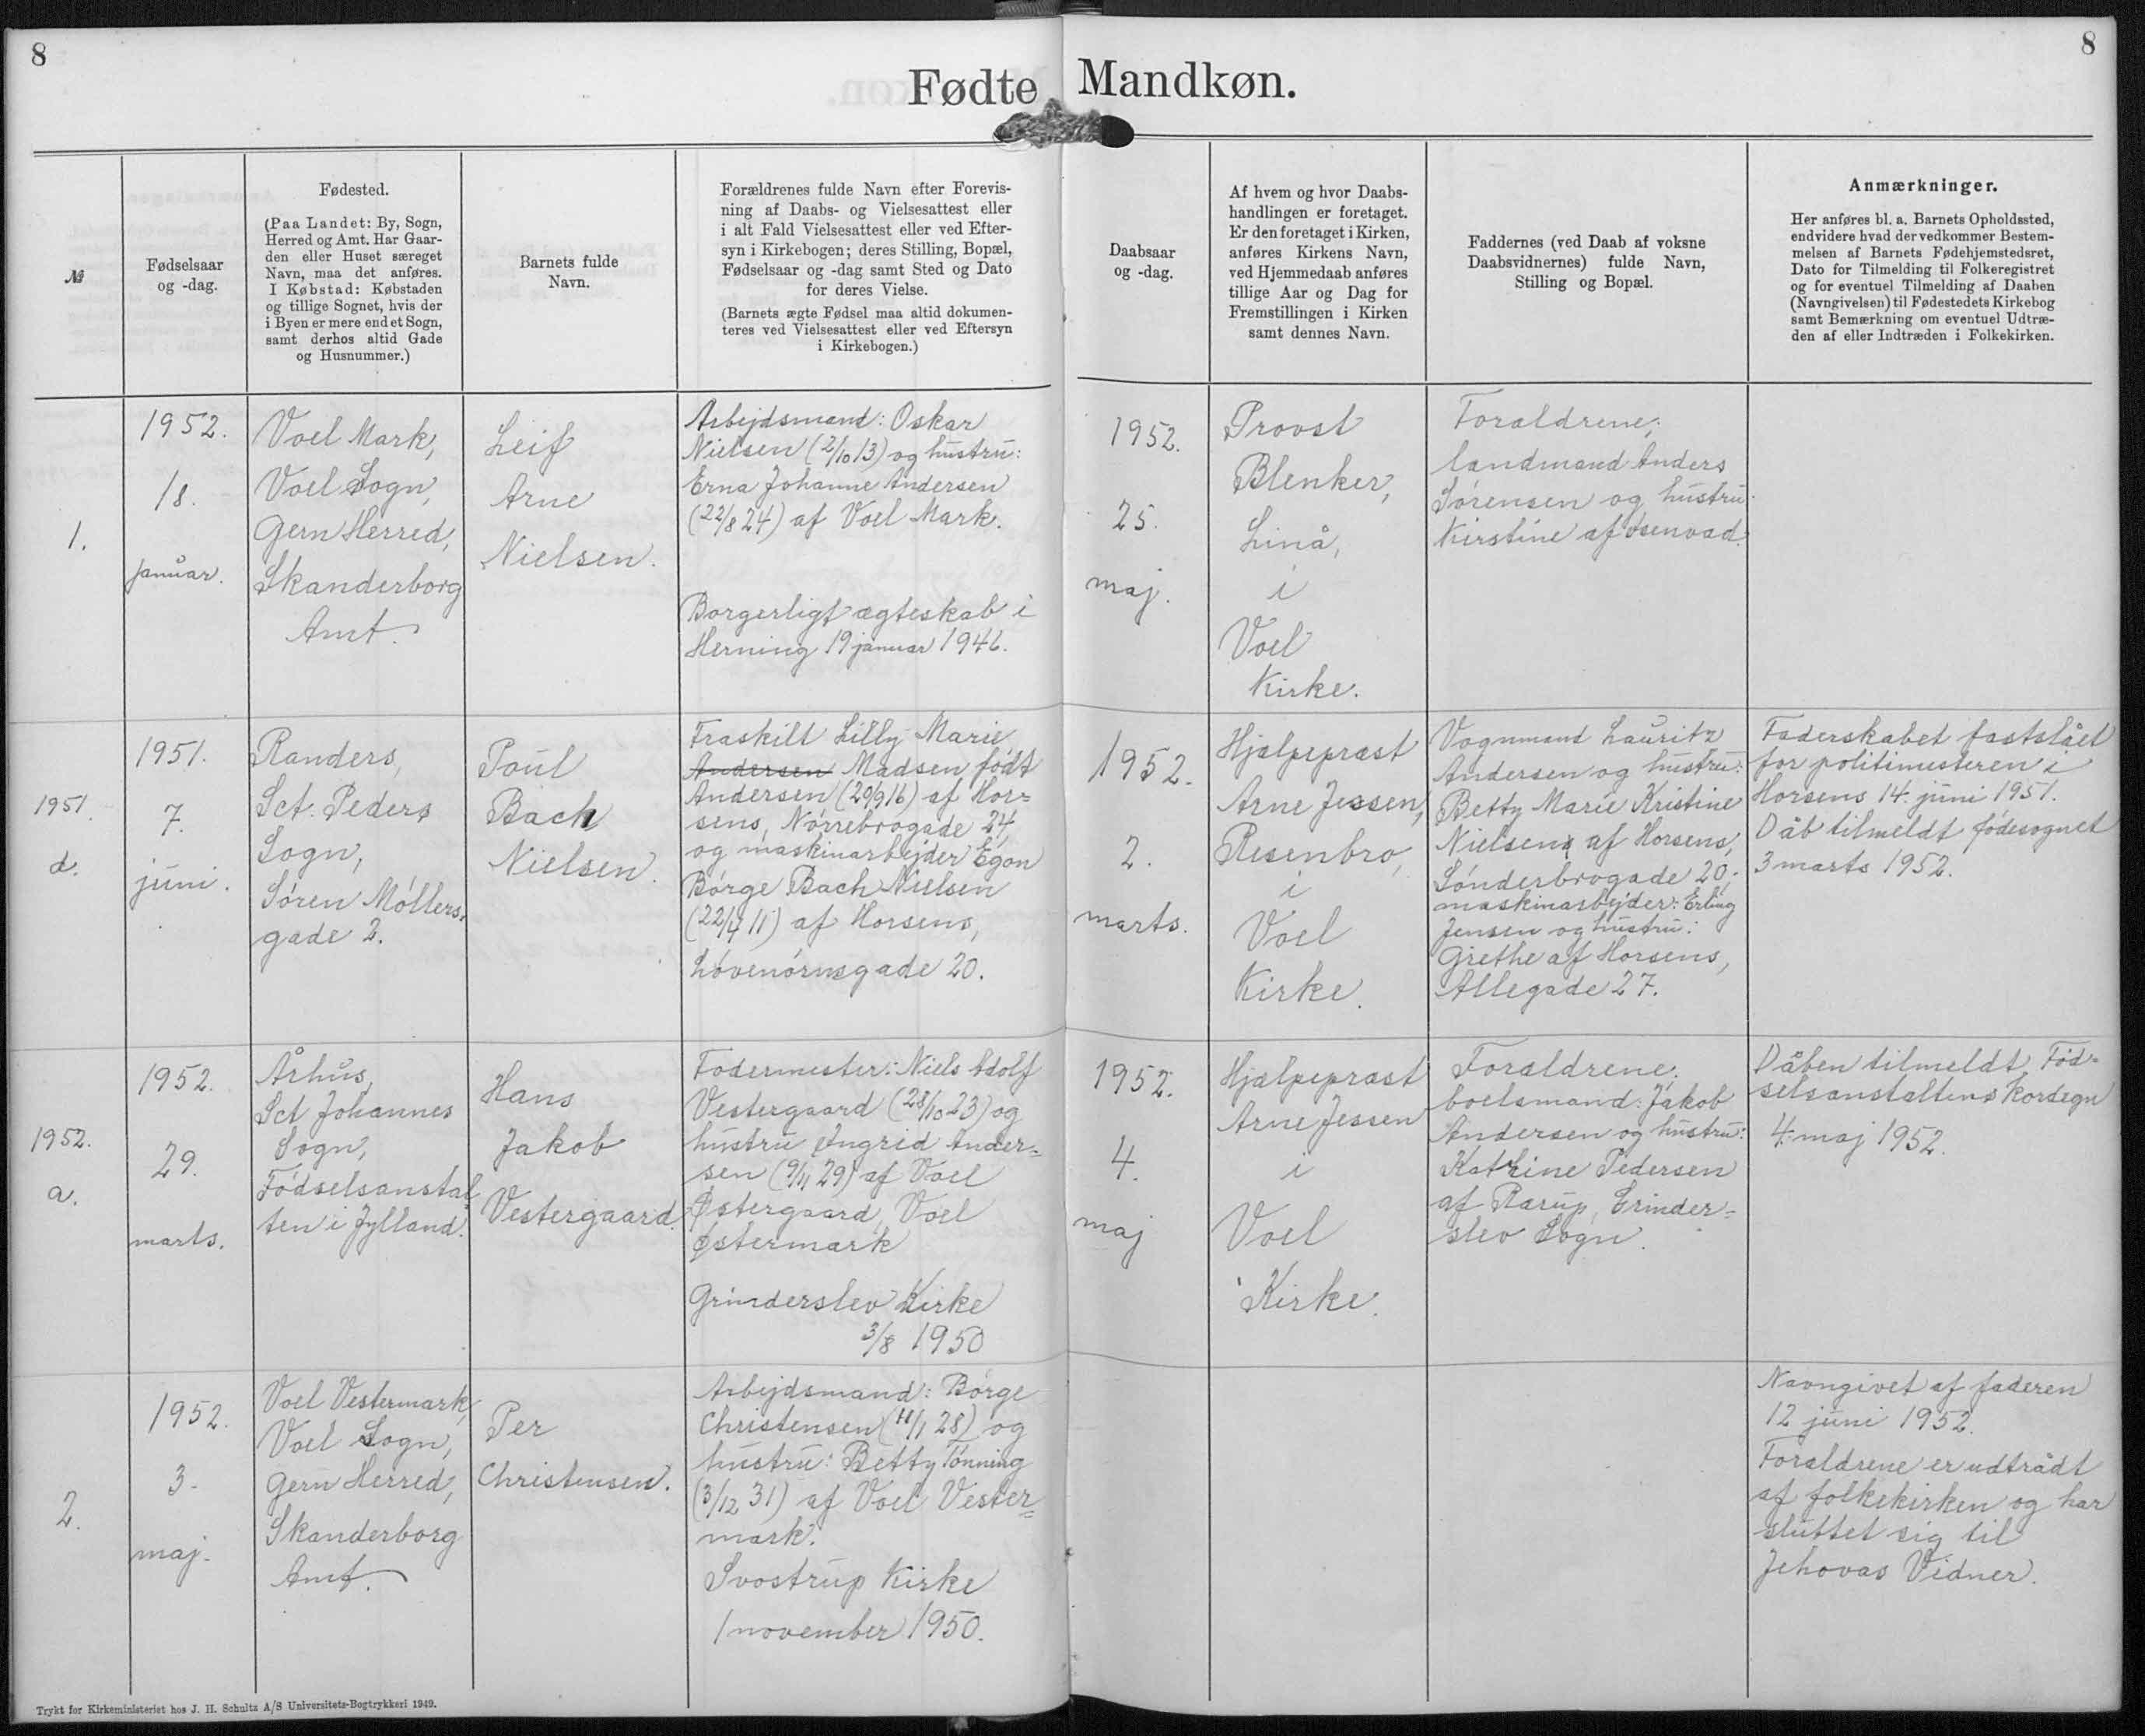 8
8
Fødte Mandkøn.
№
Fødselsaar
og -dag.
Fødested.
(Paa Landet: By, Sogn,
Herred og Amt. Har Gaar-
den eller Huset særeget
Navn, maa det anføres.
I Købstad: Købstaden
og tillige Sognet, hvis der
i Byen er mere end et Sogn,
samt derhos altid Gade
og Husnummer.)
Barnets fulde
Navn.
Forældrenes fulde Navn efter Forevis-
ning af Daabs- og Vielsesattest eller
i alt Fald Vielsesattest eller ved Efter-
syn i Kirkebogen; deres Stilling, Bopæl,
Fødselsaar og -dag samt Sted og Dato
for deres Vielse.
(Barnets ægte Fødsel maa altid dokumen-
teres ved Vielsesattest eller ved Eftersyn
i Kirkebogen.)
Daabsaar
og -dag.
Af hvem og hvor Daabs-
handlingen er foretaget.
Er den foretaget i Kirken,
anføres Kirkens Navn,
ved Hjemmedaab anføres
tillige Aar og Dag for
Fremstillingen i Kirken
samt dennes Navn.
Faddernes (ved Daab af voksne
Daabsvidnernes) fulde Navn,
Stilling og Bopæl.
Anmærkninger.
Her anføres bl. a. Barnets Opholdssted,
endvidere hvad der vedkommer Bestem-
melsen af Barnets Fødehjemstedsret,
Dato for Tilmelding til Folkeregistret
og for eventuel Tilmelding af Daaben
(Navngivelsen) til Fødestedets Kirkebog
samt Bemærkning om eventuel Udtræ-
den af eller Indtræden i Folkekirken.
1.
1952.
18.
januar.
Voel Mark,
Voel Sogn,
Gern Herred,
Skanderborg
Amt.
Leif
Arne
Nielsen.
Arbejdsmand: Oskar
Nielsen (2/10 13) og hustru:
Erna Johanne Andersen
(22/8 24) af Voel Mark.
Borgerligt ægteskab i
Herning 19 januar 1946.
1952.
25.
maj.
Provst
Blenker,
Linå,
i
Voel
Kirke.
Forældrene;
landmand Anders
Sørensen og hustru
Kirstine af Øsenvad.
1951.
d.
1951.
7.
juni.
Randers,
Sct. Peders
Sogn,
Søren Møllers-
gade 2.
Poul
Bach
Nielsen.
Fraskilt Lilly Marie
Andersen Madsen født
Andersen (29/9 16) af Hor=
sens, Nørrebrogade 24,
og maskinarbejder Egon
Børge Bach Nielsen
(22/4 11) af Horsens,
Løvenørnsgade 20.
1952.
2.
marts.
Hjælpepræst
Arne Jessen,
Resenbro,
i
Voel
Kirke.
Vognmand Lauritz
Andersen og hustru:
Betty Marie Kristine
Nielsen, af Horsens,
Sønderbrogade 20.
maskinarbejder: Erling
Jensen og hustru:
Grethe af Horsens,
Allegade 27.
Faderskabet fastslået
for politimesteren i
Horsens 14. juni 1951.
Dåb tilmeldt fødesognet
3 marts 1952.
1952.
a.
1952.
29.
marts.
Århus,
Sct Johannes
Sogn,
Fødselsanstal
ten i Jylland.
Hans
Jakob
Vestergaard.
Fodermester: Niels Adolf
Vestergaard (28/10 23) og
hustru Ingrid Ander=
sen (9/11 29) af Voel
Østergaard, Voel
Østermark
Grinderslev Kirke
3/8 1950
1952.
4.
maj
Hjælpepræst
Arne Jessen
i
Voel
Kirke.
Forældrene:
boelsmand: Jakob
Andersen og hustru:
Katrine Pedersen
af Rarup, Grinder=
slev Sogn.
Dåben tilmeldt Fød=
selsanstaltens Kordegn
4. maj 1952.
2.
1952.
3.
maj.
Voel Vestermark,
Voel Sogn,
Gern Herred,
Skanderborg
Amt.
Per
Christensen.
Arbejdsmand: Børge
Christensen (11/1 28) og
hustru: Betty Tønning
(3/12 31) af Voel Vester=
mark.
Svostrup Kirke
1 november 1950.
Navngivet af faderen
12 juni 1952.
Forældrene er udtrådt
af folkekirken og har
sluttet sig til
Jehovas Vidner.
Trykt for Kirkeministeriet hos J. H. Schultz A/S Universitets-Bogtrykkeri 1949.